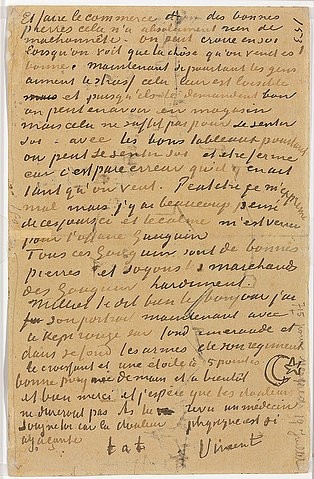 Et faire le commerce des bonnes
pierres cela n'a absolument rien de
malhonnête. on peut croire en soi
lorsqu'on voit que la chose qu'on vend est
bonne. maintenant si pourtant les gens
aiment le strass cela leur est loisible
et puisqu'ils le demandent bon
on peut en avoir en magasin
mais cela ne suffit pas pour se sentir
sûr - avec les bons tableaux pourtant
on peut se sentir sûr et être ferme
car c'est pure erreur qu'il y en ait
tant qu'on veut. Peutetre je m'exprime
mal mais j'y ai beaucoup pensé
de ces jours ci et le calme m'est venu
pour l'affaire Gauguin
Tous ces Gauguin sont de bonnes
pierres et soyons les marchands
des Gauguin hardiment.
Milliet te dit bien le bonjour j'ai
son portrait maintenant avec
le kepi rouge sur fond emeraude et
dans ce fond les armes de son regiment
le croissant et une étoile à 5 pointes
bonne poignée de main et à bientôt
et bien merci et j'espère que les douleurs
ne dureront pas As tu revu un medecin
soigne toi car la douleur physique est si
agaçante
t à t Vincent